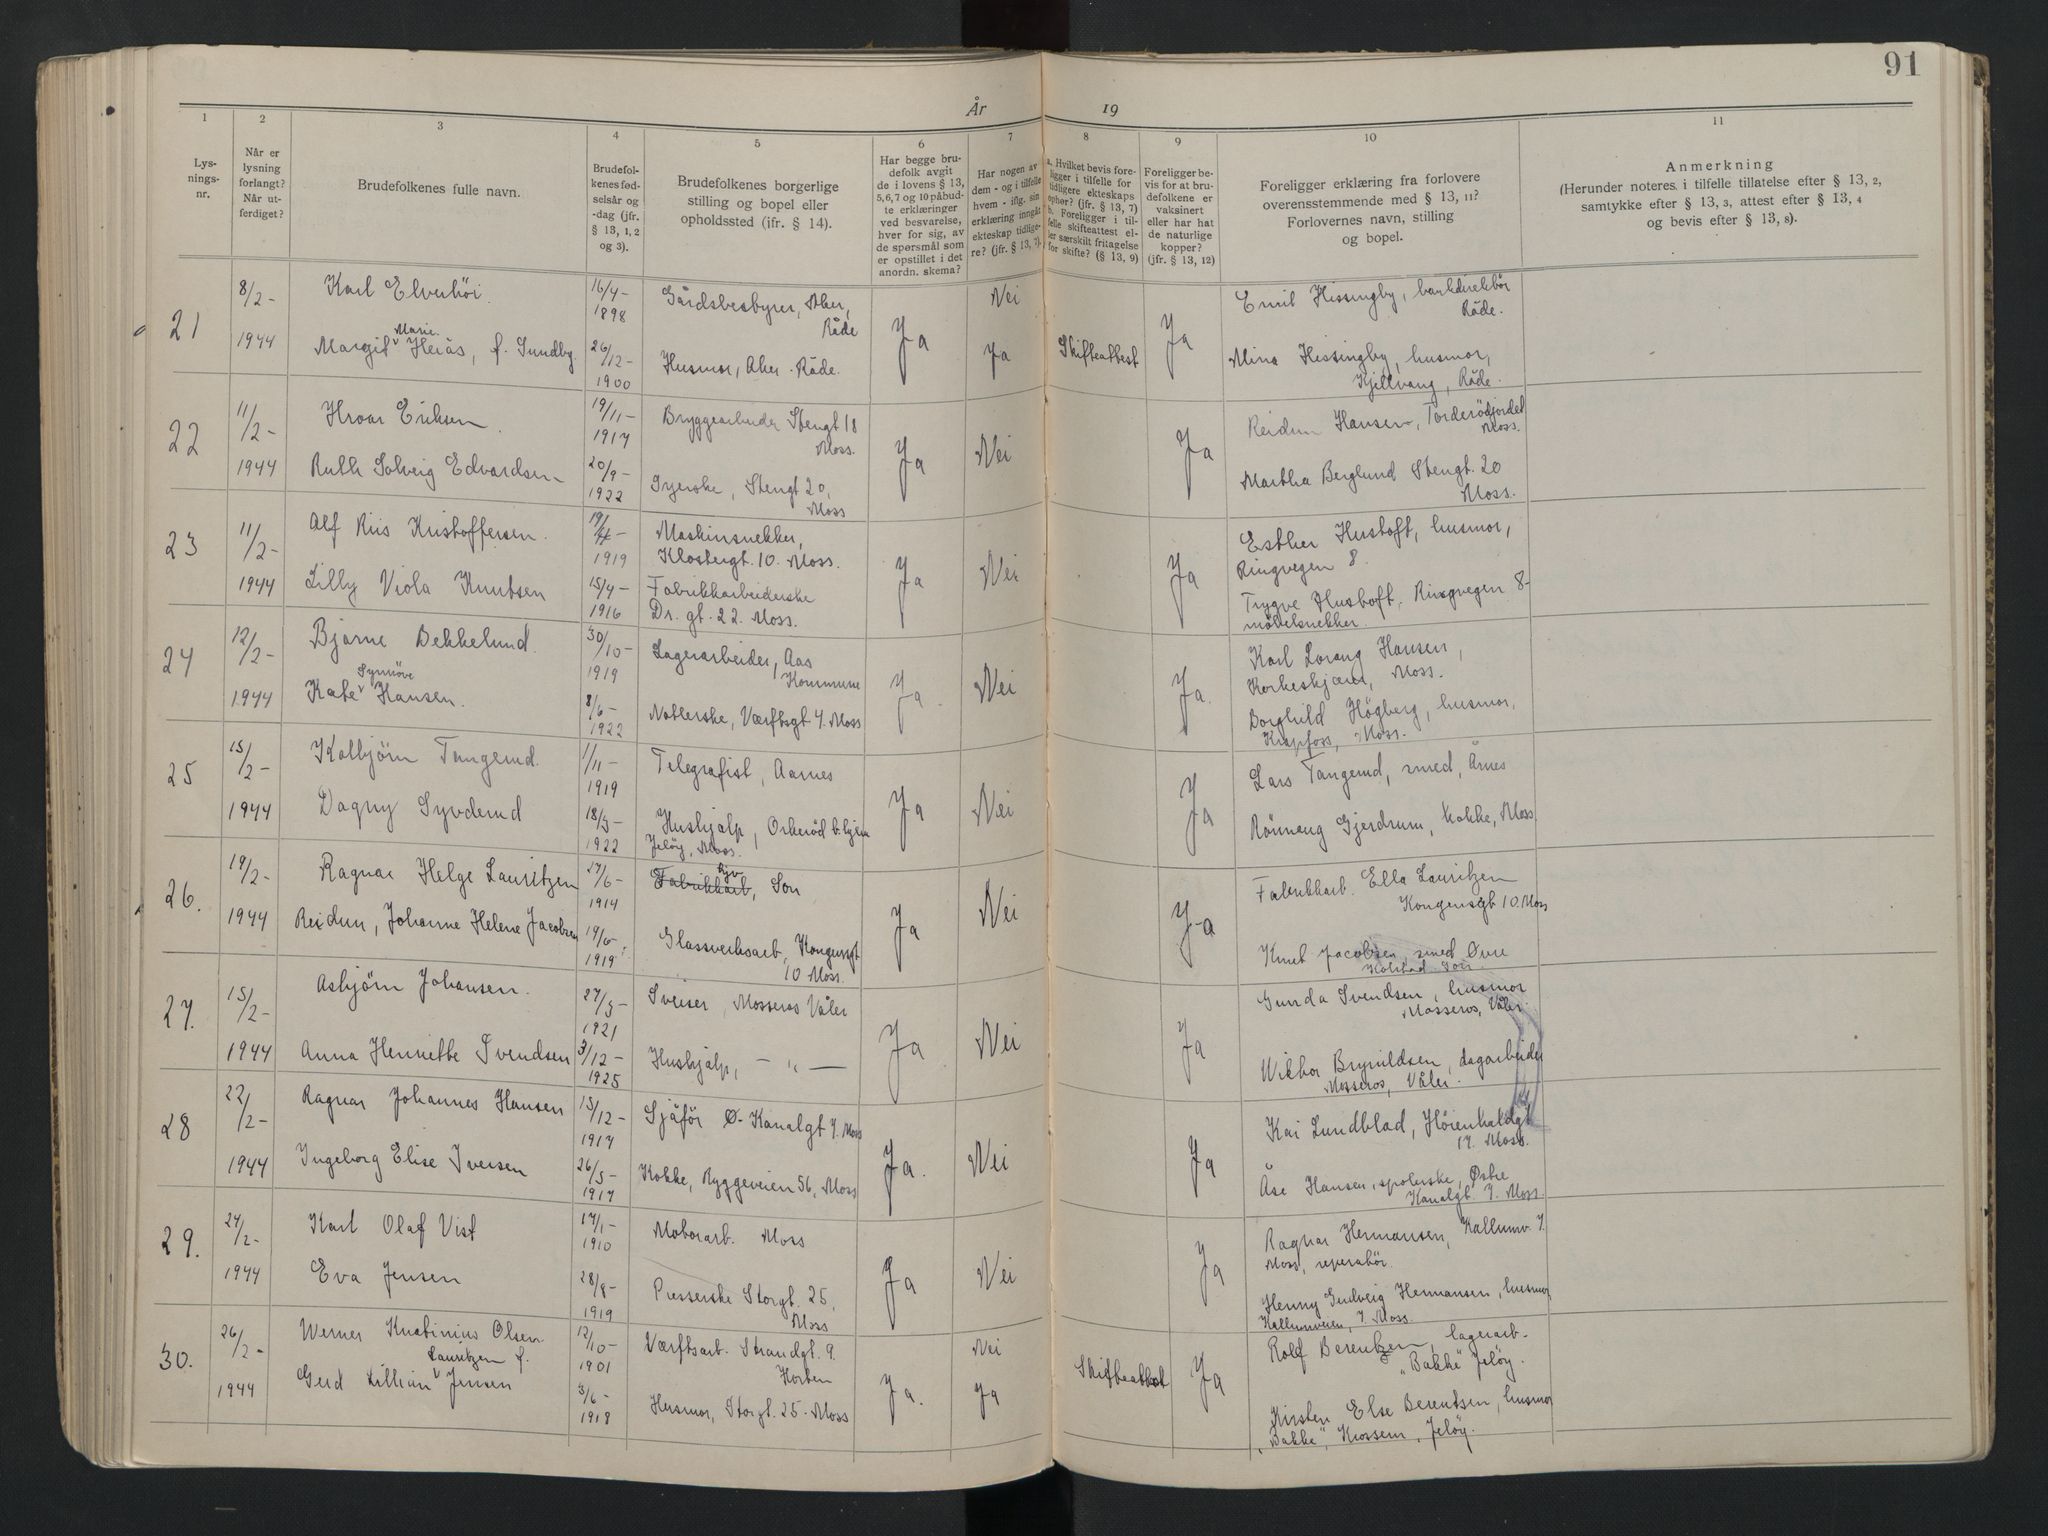 91
År 19
1 2 3 4 5 6 7 8 9 10 11
Lys-
nings-
nr.
Når er
lysning
forlangt?
Når ut-
ferdiget?
Brudefolkenes fulle navn.
Brudefol-
kenes fød-
selsår og
-dag (jfr.
§ 13, 1, 2
og 3).
Brudefolkenes borgerlige
stilling og bopel eller
opholdssted (jfr. § 14).
Har begge bru-
defolk avgit
de i lovens § 13,
5, 6, 7 og 10 påbud-
te erklæringer
ved besvarelse,
hver for sig, av
de spørsmål som
er opstillet i det
anordn. skema?
Har nogen av
dem - og i tilfelle
hvem - iflg. sin
erklæring inngått
ekteskap tidlige-
re? (jfr. § 13, 7).
a. Hvilket bevis fore-
ligger i tilfelle for
tidligere ekteskaps
ophør? (jfr. § 13, 7)
b. Foreligger i til-
felle skifteattest el-
ler særskilt fritagelse
for skifte? (§ 13, 9)
Foreligger be-
vis for at bru-
defolkene er
vaksinert
eller har hat
de naturlige
kopper?
(jfr. § 13, 12)
Foreligger erklæring fra forlovere
overensstemmende med § 13, 11?
Forlovernes navn, stilling
og bopel.
Anmerkning
(Herunder noteres i tilfelle tillatelse efter § 13, 2,
samtykke efter § 13, 3, attest efter § 13, 4
og bevis efter § 13, 8).
21
8/2-
1944
Karl Elverhöi.
Marie
Margit Heiås, f. Sundby
16/4-
1898
26/12-
1900
Gårdsbestyrer, Aker,
Råde
Husmor, Aker. Råde.
Ja
Nei
Ja
Skifteattest
Ja
Emil Hissingby,
Råde.
Mina Hissingby, husmor,
Kjellvang, Råde.
22
11/2-
1944
Hroar Eriksen.
Ruth Solveig Edvardsen
19/11-
1917
20/9-
1922
Bryggearbeider Stengt 18
Moss.
Syerske, Stengt 20,
Moss
Ja
Nei
Ja
Reidun Hansen, Torderödjordet
Moss.
Martha Berglund Stengt. 20
Moss.
23
11/2-
1944
Alf Riis Kristoffersen.
Lilly Viola Knutsen
19/
1919
15/4-
1916
Maskinsnekker,
Klostergt. 10. Moss.
Fabrikkarbeiderske
Dr. gt. 22. Moss.
Ja
Nei
Ja
Esther Hustoft, husmor,
Ringvegen 8.
Trygve Hustoft, Ringvegen 8-
möbelsnekker.
24
12/2-
1944
Bjarne Bekkelund.
Synnöve
Kate Hansen.
30/10-
1919
8/6-
1922
Lagerarbeider, Aas
Kommune
Notlerske, Værftsgt 7. Moss
Ja.
Nei
Ja.
Karl Lorang Hansen,
Korkeskjærer, Moss.
Borghild Högberg, husmor,
Krapfoss, Moss.
25
15/2-
1944
Kolbjörn Tangerud.
Dagny Syvderud
1/11-
1919
18/3-
1922
Telegrafist, Aarnes
Hushjalp, Orkeröd b.hjem
Jelöy, Moss.
Ja
Nei
Ja
Lars Tangerud, smed, Årnes
Rönnaug Gjerdrum, kokke, Moss
26.
19/2-
1944
Ragnar Helge Lauritzen
Reidun, Johanne Helene Jacobsen
27/6-
1914
19/6-
1919
Fabrikkarb, Son
Glassverksarb, Kongensgt
10 Moss.
Ja
Nei
Ja
Fabrikkarb. Ella Lauritzen
Kongensgt 10. Moss
Knut Jacobsen, smed Øvre
Kolstad Son
27.
15/2-
1944
Asbjörn Johansen.
Anna Henriette Svendsen
27/3-
1921
3/12-
1925
Sveiser, Mosseros Våler
Hushjalp, — „ —
Ja
Nei
Ja
Gunda Svendsen, husmor
Mosseros, Våler.
Viktor Brynildsen, dagarbeider
Mosseros, Våler.
28
22/2-
1944
Ragnar Johannes Hansen
Ingeborg Elise Iversen
15/12-
1917
26/3-
1917
Sjåför Ø. Kanalgt 7. Moss
Kokke, Ryggeveien 56, Moss
Ja.
Nei
Ja
Kai Lundblad, Höienhaldgt
17. Moss.
Åse Hansen, spolerske, Østre
Kanalgt. 7. Moss.
29.
24/2-
1944
Karl Olaf Vist
Eva Jensen
17/1-
1910
28/8-
1919
Motorarb. Moss
Presserske Storgt. 25,
Moss
Ja
Nei
Ja
Ragnar Hermansen, Kallumv. 7.
Moss, reperatör.
Henny Gudveig Hermansen, husmor
Kallumveien, 7. Moss.
30.
26/2-
1944
Werner Olsen
Lauritzen f.
Gerd Lillian Jensen
12/10-
1901
3/6-
1918
Værftsarb. Strandgt. 9.
Horten
Husmor, Storgt. 25. Moss
Ja.
Nei
Ja
Skifteattest
Ja
Rolf Berentzen, lagerarb.
„Bakke" Jelöy.
Kirsten Else Berentsen, husmor
„Bakke", Krossern, Jelöy.